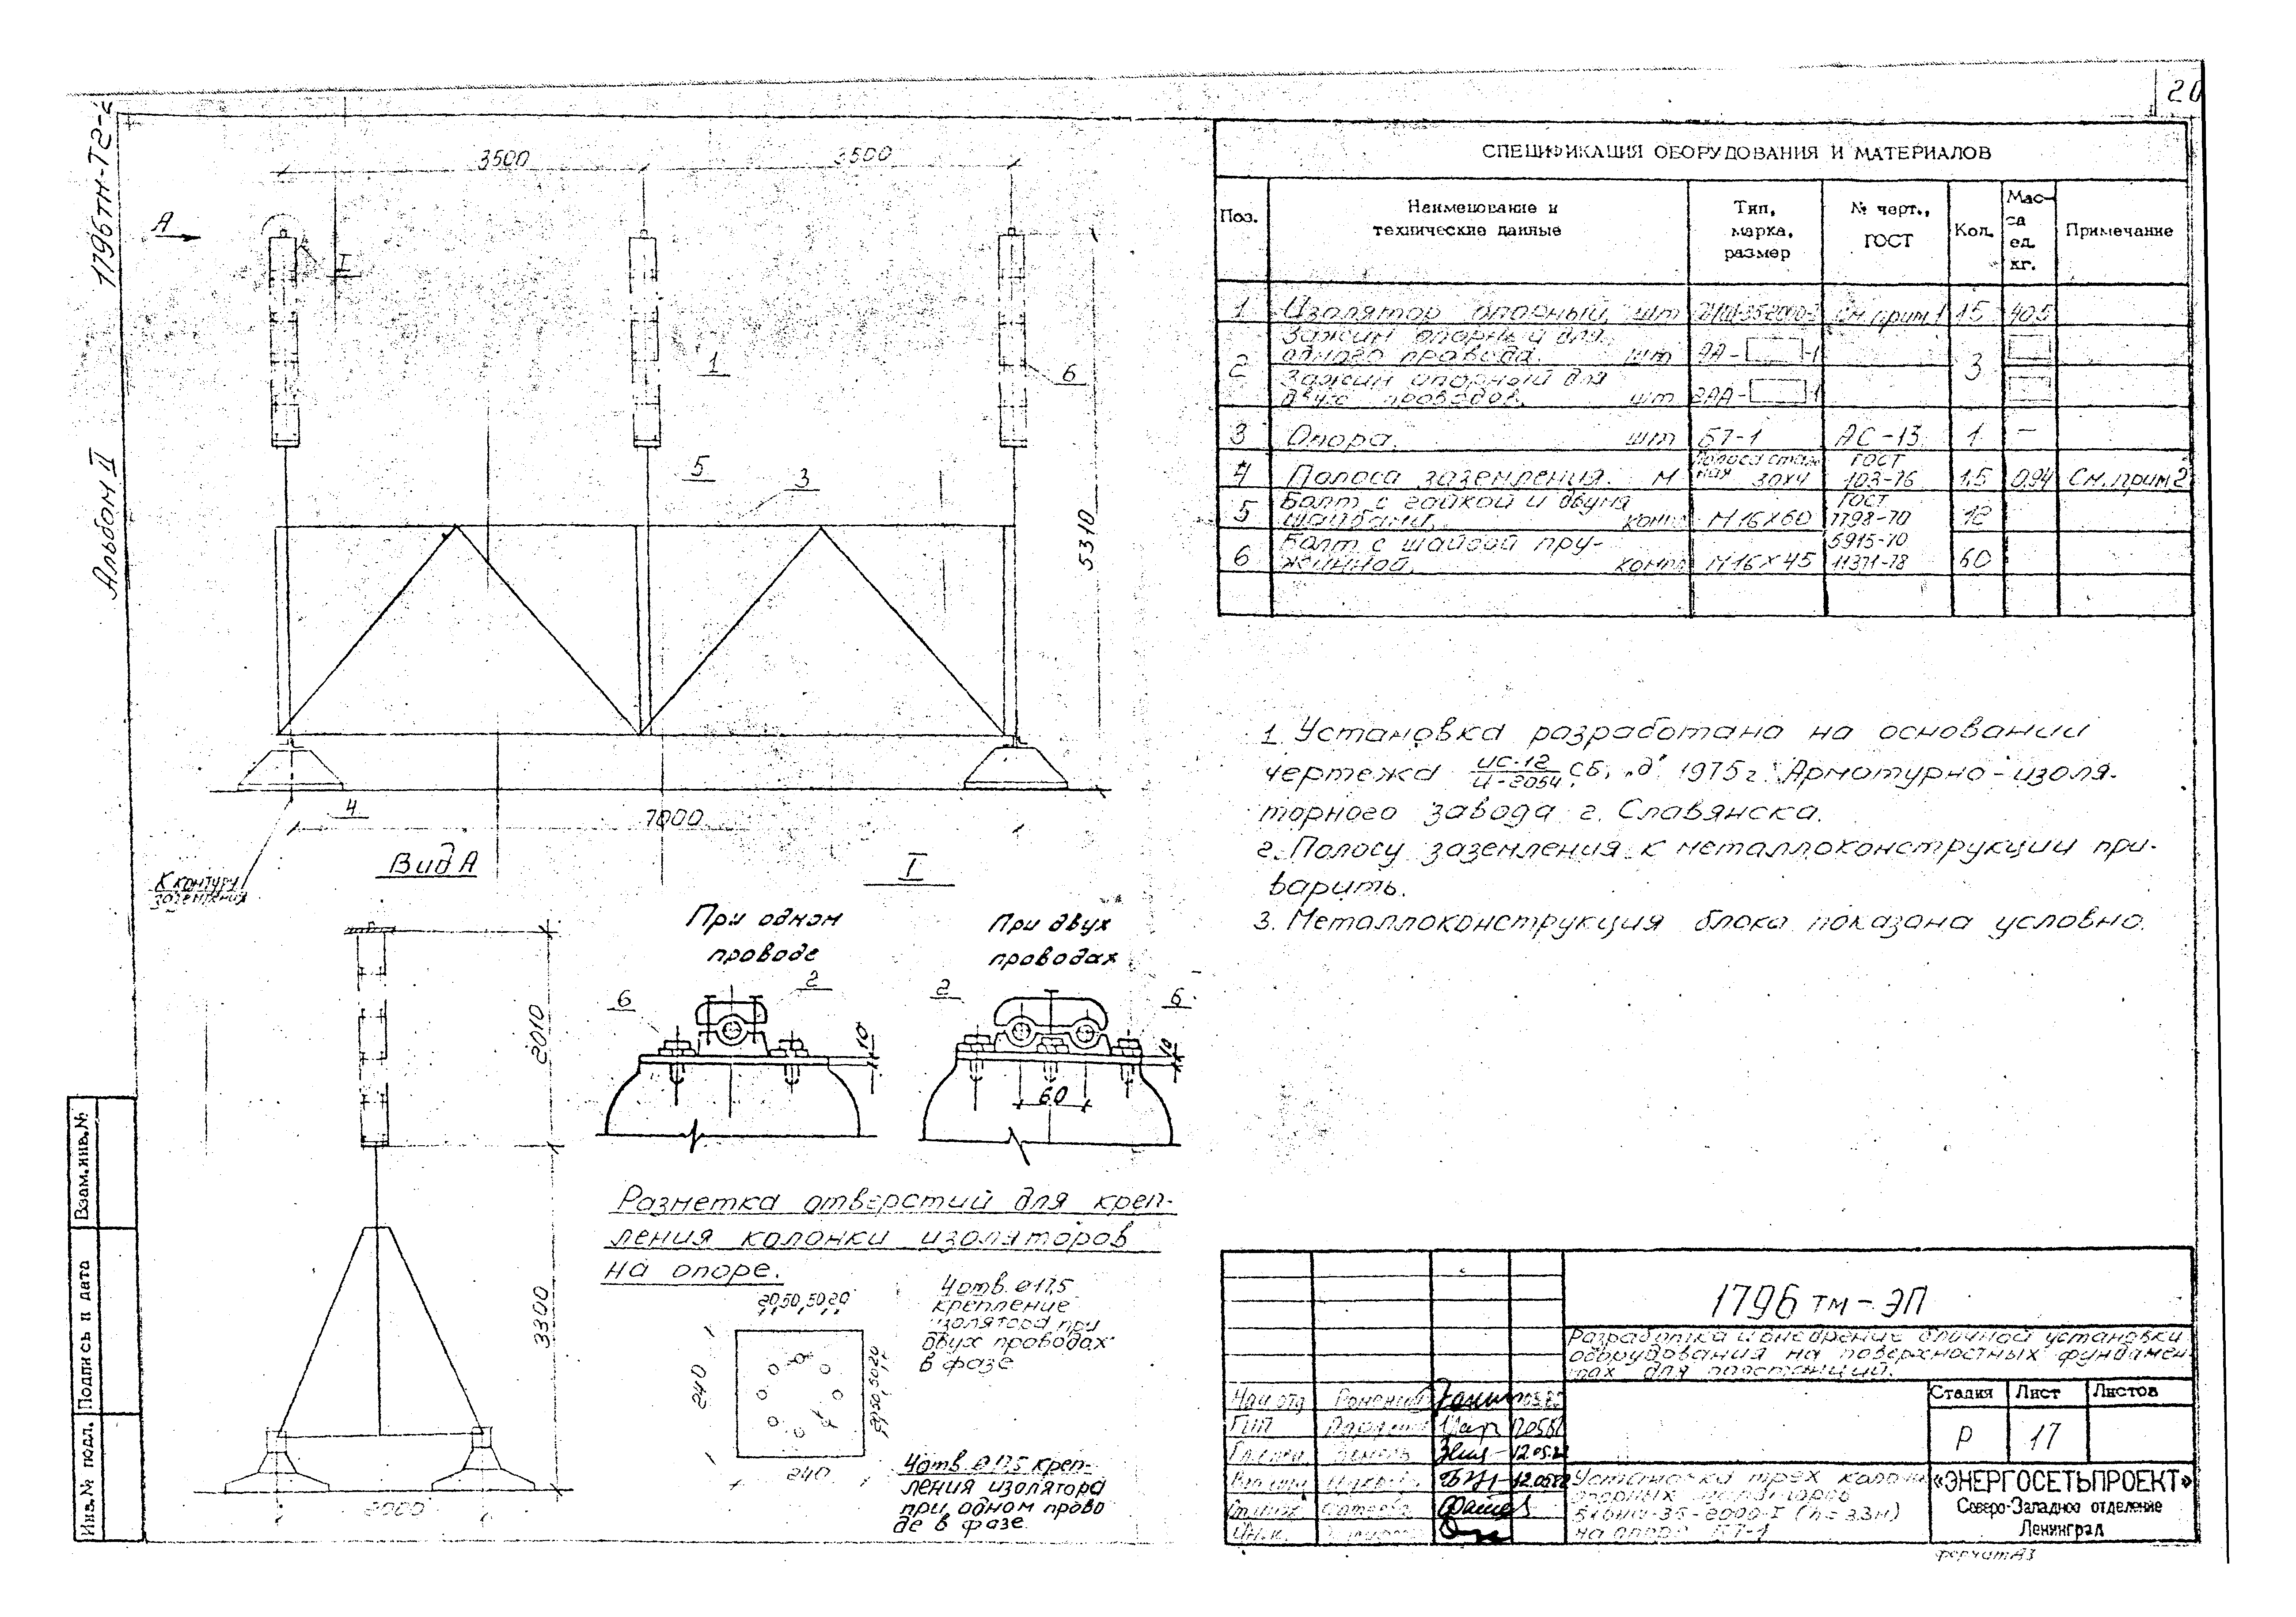 20
1796тм-Т2-2
Альбом II
3500
3500
А
I
1
6
5
3
5310
4
7000
К контуру
заземления
Вид А
2010
3300
2000
I
При одном
проводе
При двух
проводах
6
2
2
6
10
10
60
Разметка отверстий для креп-
ления колонки изоляторов
на опоре.
20,50,50,20
240
20,50,50,20
240
4отв. ø17,5
крепление
изолятора при
двух проводах
в фазе
4отв. ø17,5 креп-
ления изолятора
при одном прово
де в фазе
СПЕЦИФИКАЦИЯ ОБОРУДОВАНИЯ И МАТЕРИАЛОВ
Поз. Наименование и технические данные Тип, марка, размер № черт., ГОСТ Кол. Мас-са ед. кг. Примечание
1 Изолятор опорный шт См. прим 1 15 40.5
2 Зажим опорный для
одного провода. шт АА- -1 3
Зажим опорный для
двух проводов. шт 2АА- -1
3 Опора. шт Б7-1 АС-13 1 —
4 Полоса заземления. м Полоса сталь-ная 30х4 ГОСТ 103-76 1,5 0,94 См. прим.2
5 Болт с гайкой и двумя
шайбами. компл М16х60 ГОСТ 7798-70 12
6 Болт с шайбой пру-
жинной. компл М16х45 5915-70 11371-78 60
1. Установка разработана на основании
чертежа ИС-12/И-2054 СБ, „д" 1975г. Арматурно-изоля-
торного завода г. Славянска.
2. Полосу заземления к металлоконструкции при-
варить.
3. Металлоконструкция блока показана условно.
1796 тм-ЭП
Разработка и внедрение блочной установки
оборудования на поверхностных фундамен-
тах для подстанций.
Стадия Лист Листов
Р 17
Нач отд
ГИП
12.05.82
Установка трех колонн
опорных изоляторов
(h=3.3м)
на опоре Б7-1
«ЭНЕРГОСЕТЬПРОЕКТ»
Северо-Западное отделение
Ленинград
формат А3
Взам.инв.№
Подпись и дата
Инв.№ подл.